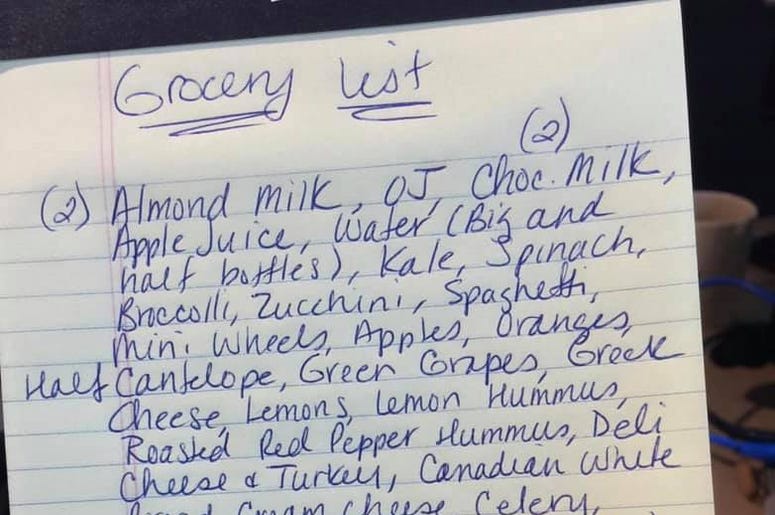 Grocery List
(2)
(2) Almond milk, OJ, Choc. Milk,
Apple Juice, Water (Big and
half bottles), Kale, Spinach,
Broccolli, Zucchini, Spaghetti,
Mini Wheels, Apples, Oranges,
Half Cantelope, Green Grapes, Greek
Cheese, Lemons, Lemon Hummus,
Roasted Red Pepper Hummus, Deli
Cheese & Turkey, Canadian White
Cream Cheese, Celery,